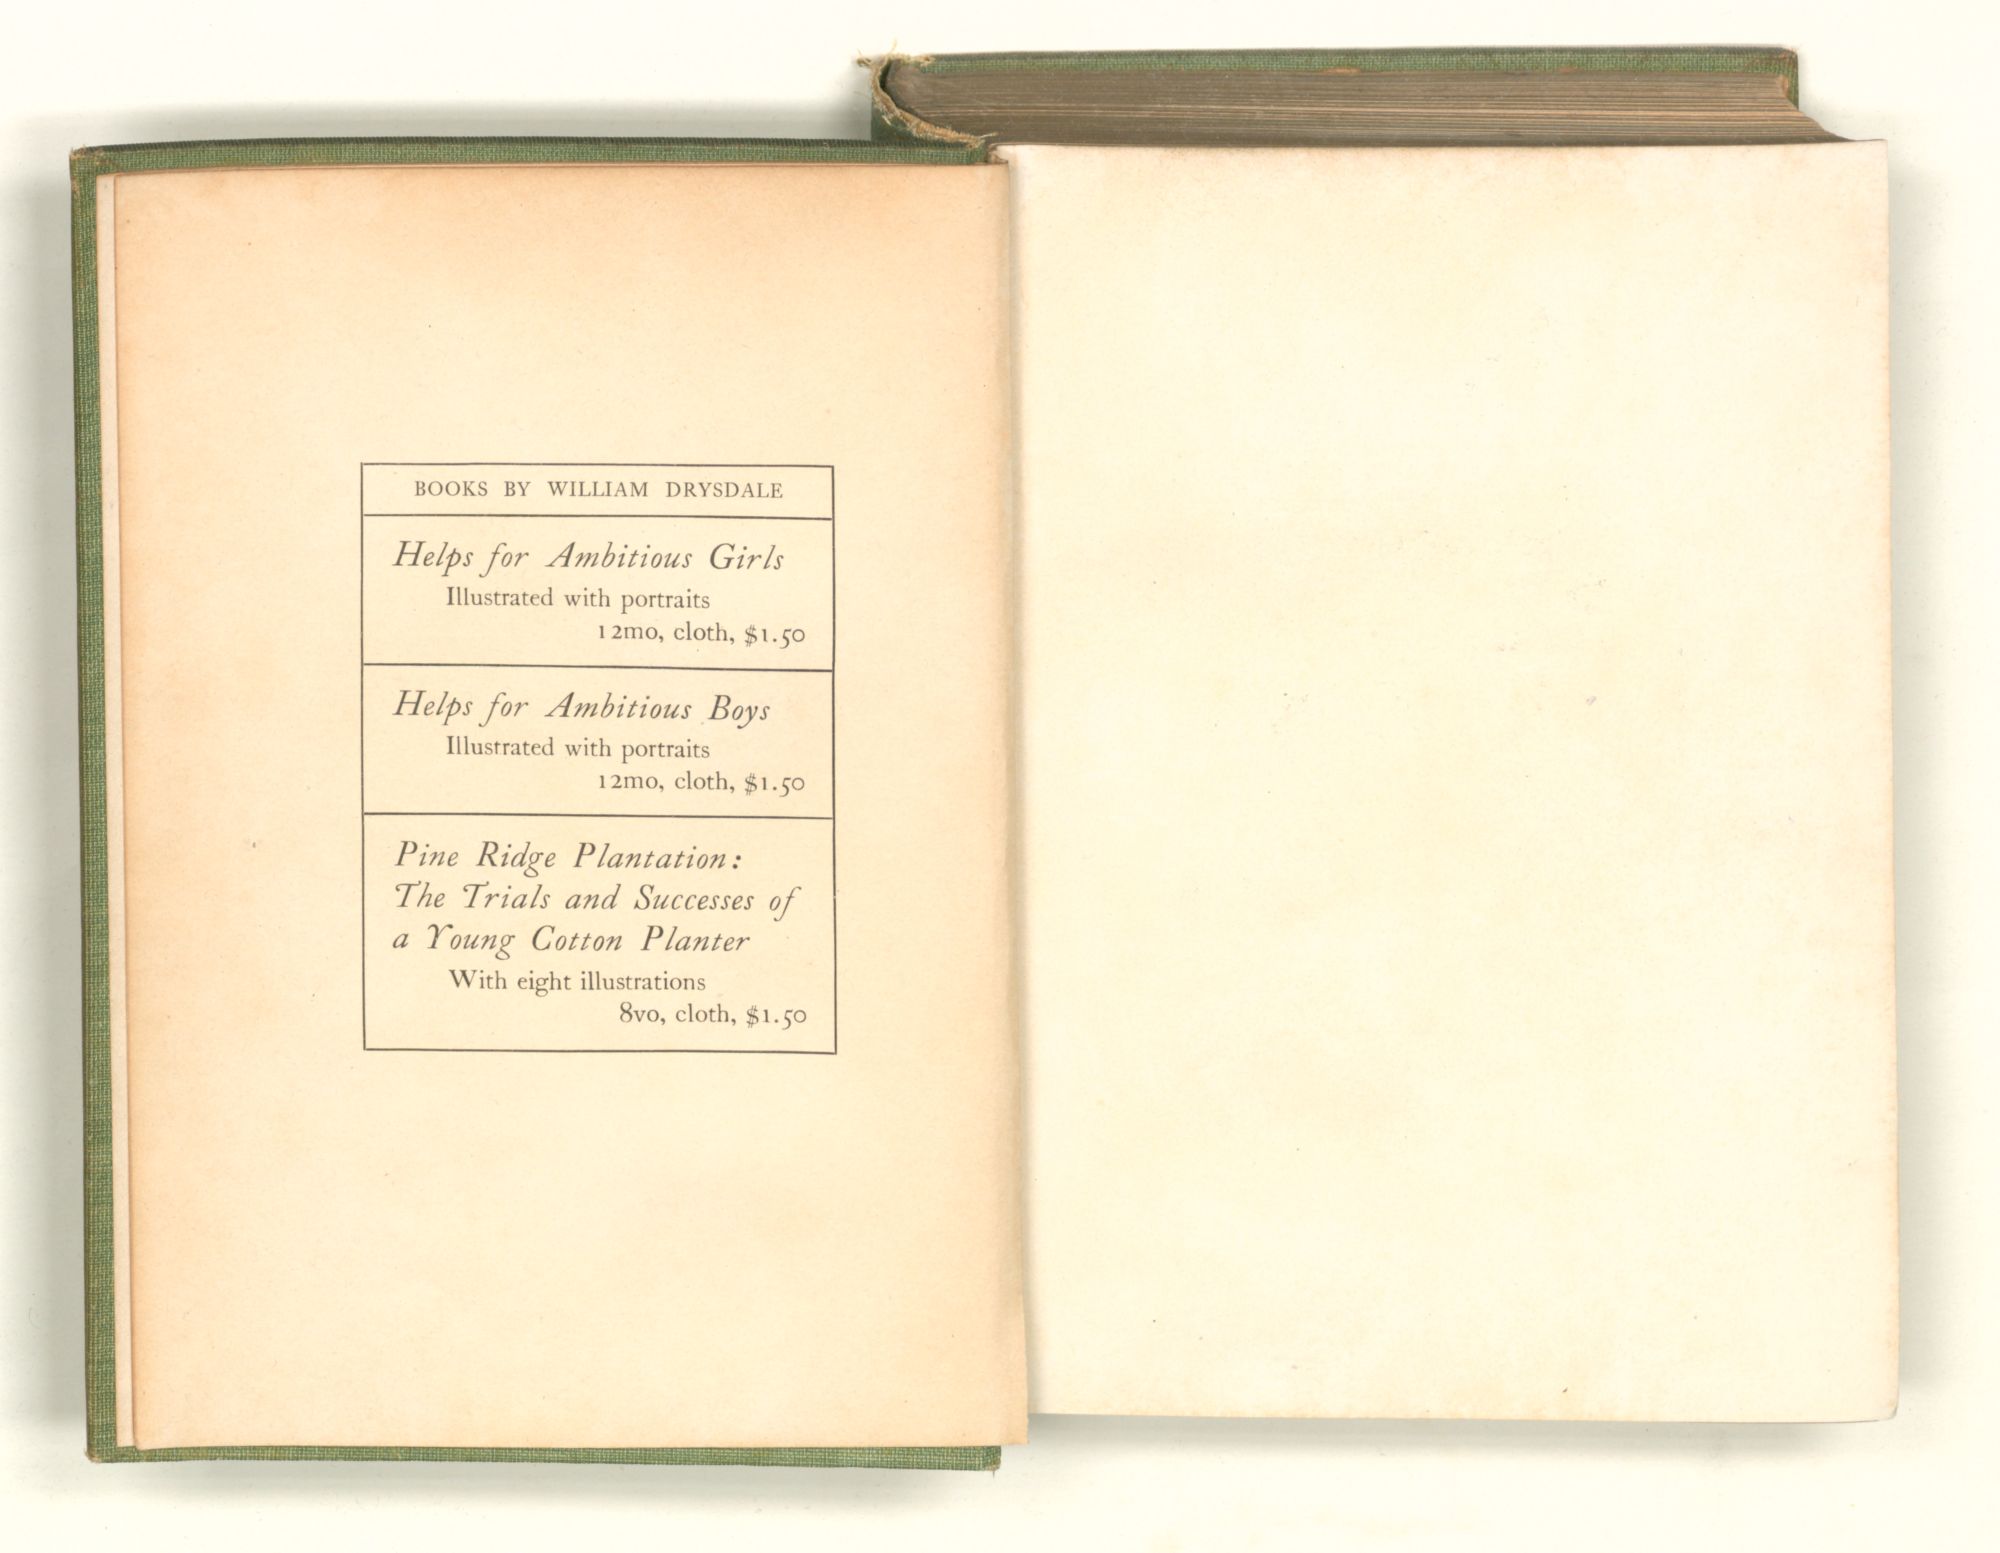 BOOKS BY WILLIAM DRYSDALE
Helps for Ambitious Girls
Illustrated with portraits
12mo, cloth, $1.50
Helps for Ambitious Boys
Illustrated with portraits
12mo, cloth, $1.50
Pine Ridge Plantation:
The Trials and Successes of
a Young Cotton Planter
With eight illustrations
8vo, cloth, $1.50